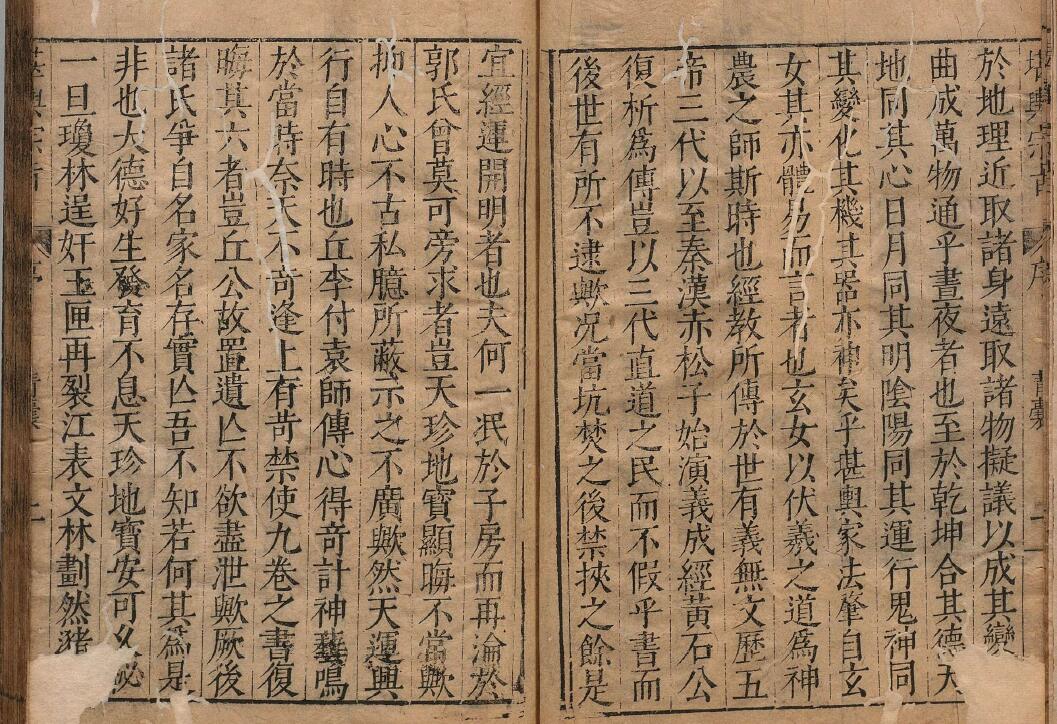 堪輿宗旨 序 青囊 二
於地理近取諸身遠取諸物擬議以成其變
曲成萬物通乎晝夜者也至於乾坤合其德天
地同其心日月同其明陰陽同其運行鬼神同
其變化其機其器亦神矣乎堪輿家法肇自玄
女其亦體易而言者也玄女以伏羲之道為神
農之師斯時也經教所傳於世有義無文歷五
帝三代以至秦漢赤松子始演義成經黃石公
復析爲傳豈以三代直道之民而不假乎書而
後世有所不逮歟况當坑焚之後禁挾之餘是
宜經運開明者也夫何一泯於子房而再淪於
郭氏曾莫可旁求者豈天珍地寶顯晦不當歟
抑人心不古私臆所蔽示之不廣歟然天運興
行自有時也丘李付袁師傳心得竒計神藝鳴
於當時奈天不竒逢上有苛禁使九卷之書復
晦其六者豈丘公故置遺亾不欲盡泄歟厥後
諸氏爭自名家名存實亾吾不知若何其爲是
非也大德好生發育不息天珍地寶安可久祕
一旦瓊林逞奸玉匣再裂江表文林劃然豬